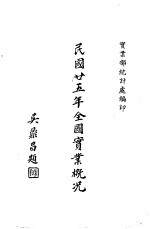 實業部統計處編印
民國廿五年全國實業概況
吳鼎昌題